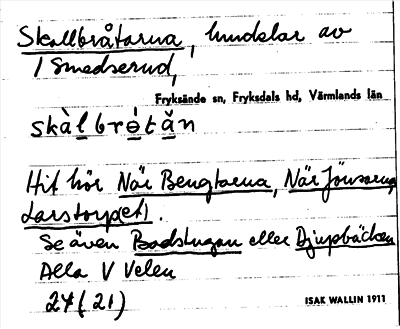 Skallbråtarna, hundelar av
1 Smedserud,
Fryksände sn, Fryksdals hd, Värmlands län
skàlbrótăn
Hit hör När Bengtarna, När Jönsarna,
Larstorp(et).
Se även Badstugan eller Djupbäcken
Alla V Velen
24 (21)
ISAK WALLIN 1911